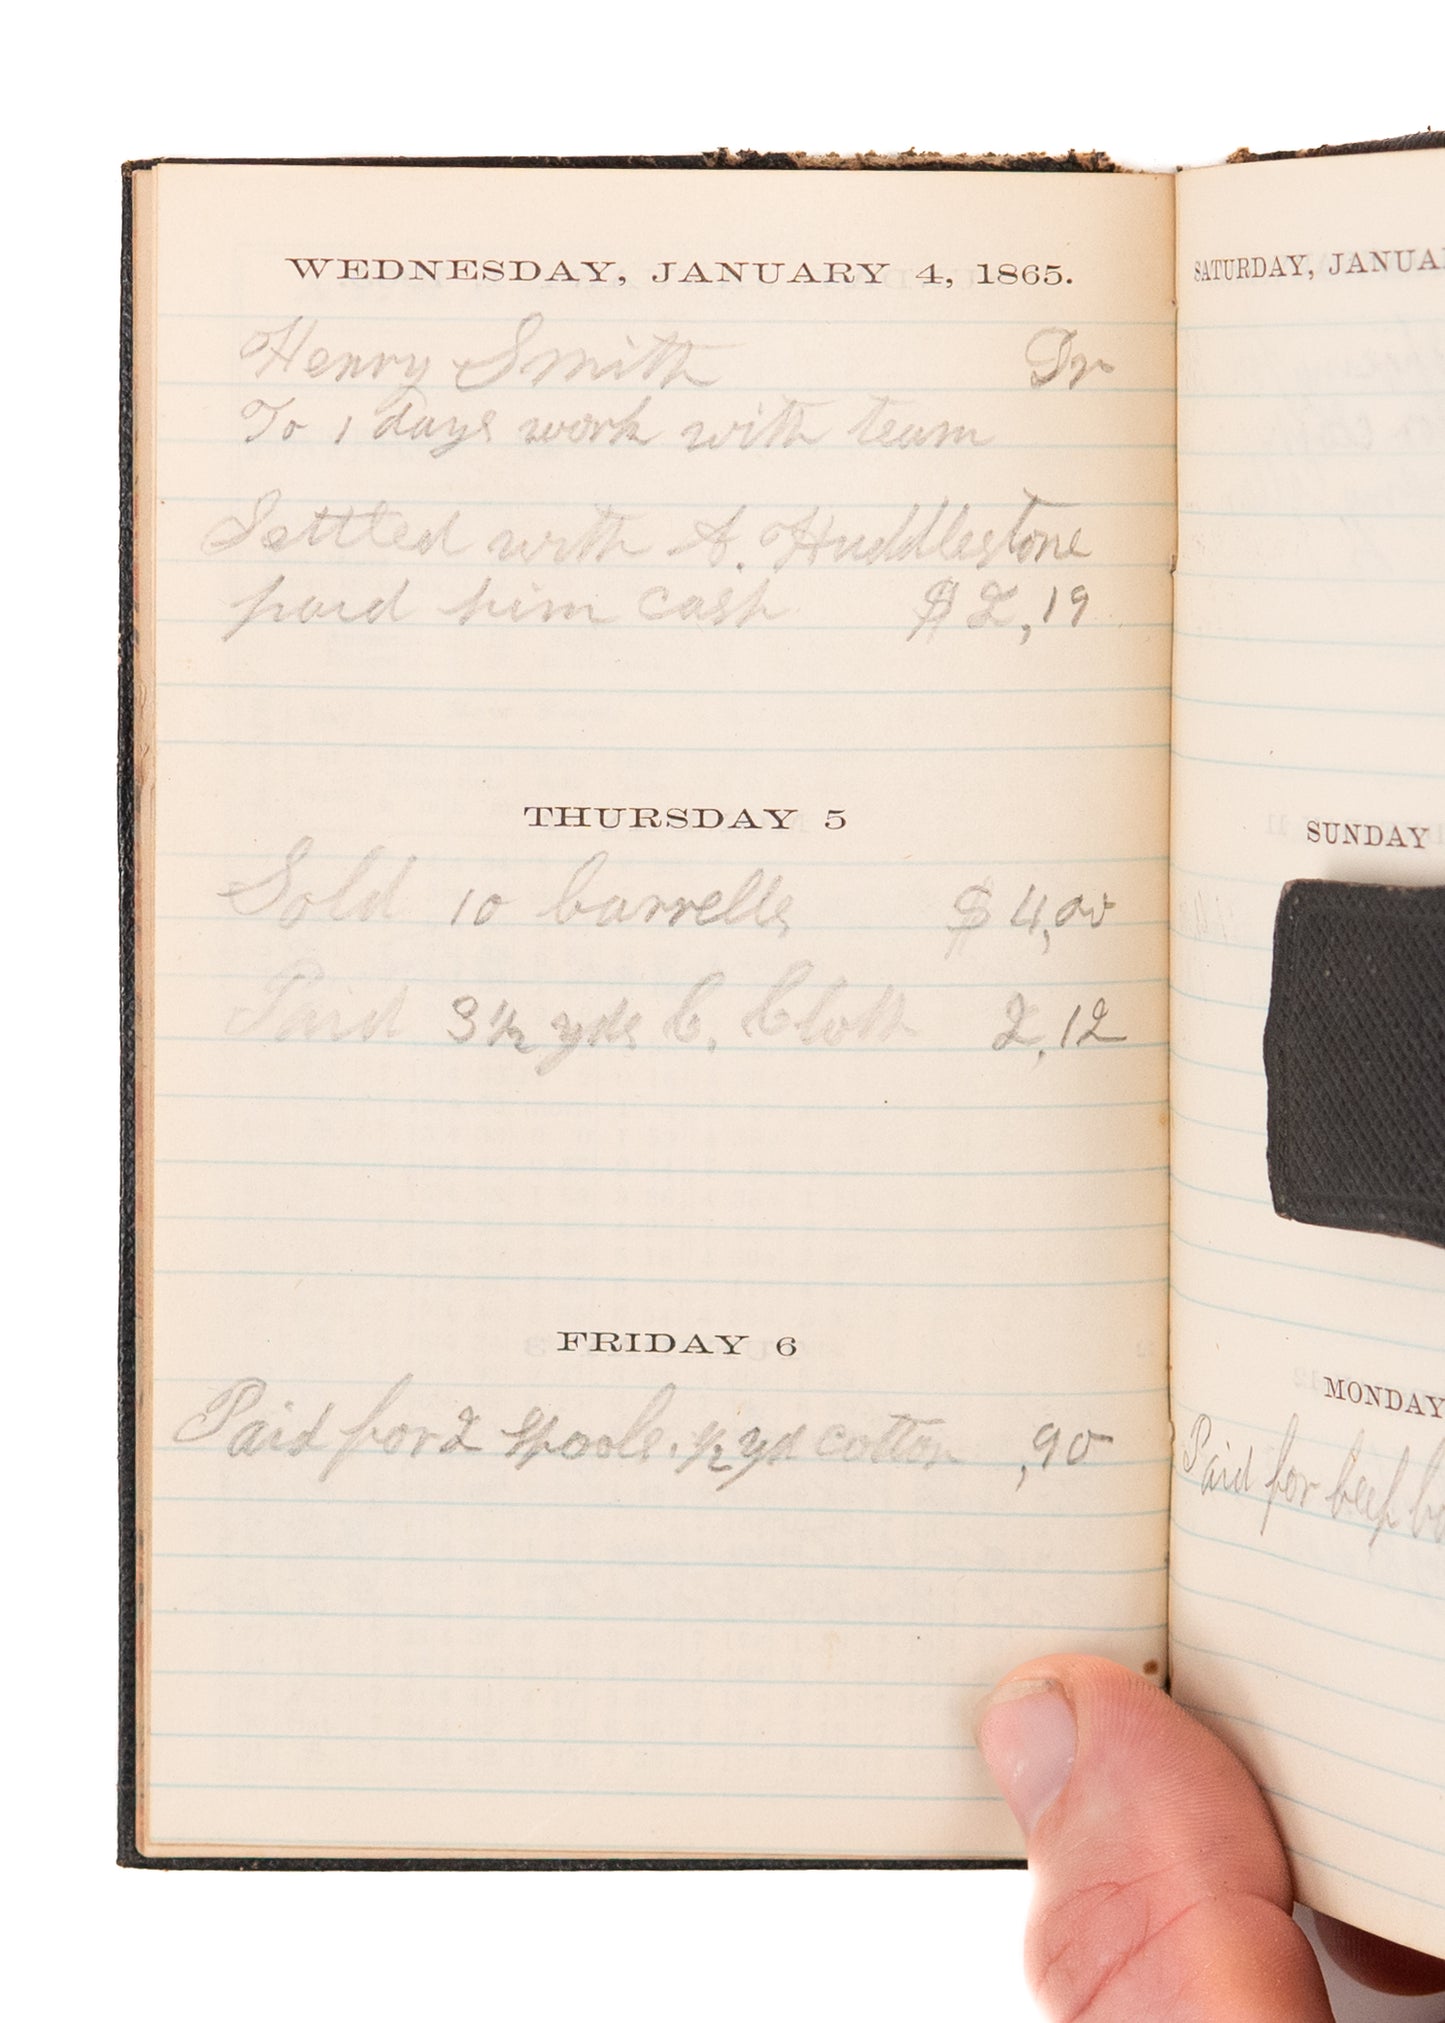 WEDNESDAY, JANUARY 4, 1865.
Henry Smith Dr
To 1 days work with team
Settled with A. Huddlestone
paid him cash $2,19
THURSDAY 5
Sold 10 barrells $4,00
Paid 3 1/2 yds C. Cloth 2,12
FRIDAY 6
Paid for 2 Spools. 1/2 yd cotton ,90
SATURDAY, JANUA
SUNDAY
MONDAY
Paid for beef